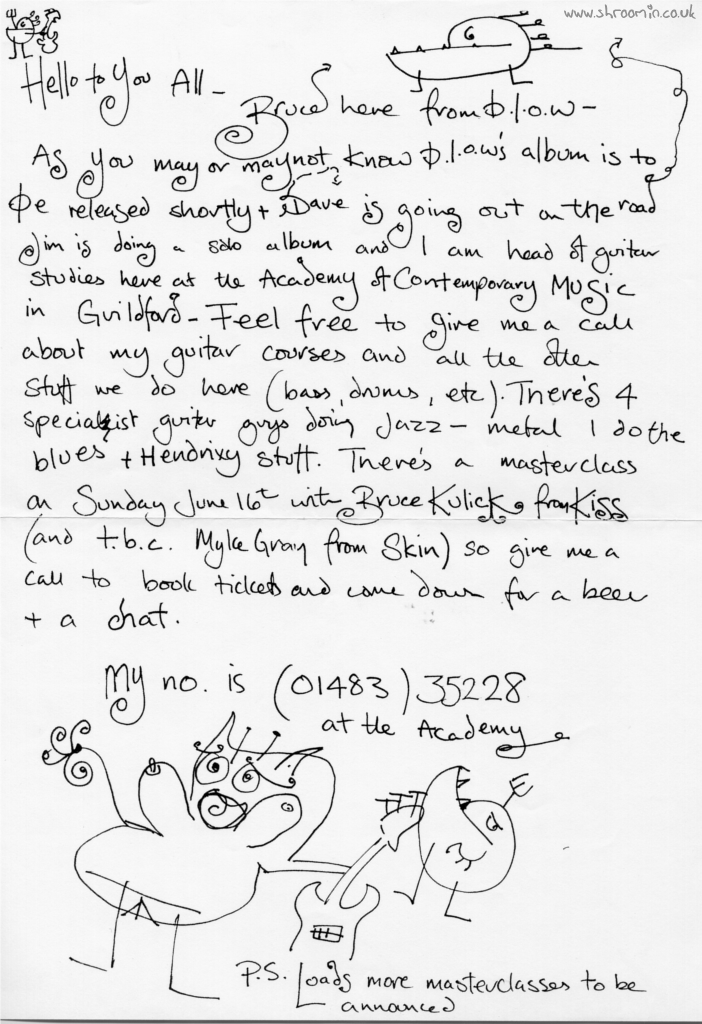 www.shroomin.co.uk
Hello to You All -
Bruce here from D.I.O.W -
As you may or may not know D.I.O.W's album is to
be released shortly + Dave is going out on the road
Jim is doing a solo album and I am head of guitar
studies here at the Academy of Contemporary Music
in Guildford - Feel free to give me a call
about my guitar courses and all the other
stuff we do here (bass, drums, etc). There's 4
specialist guitar guys doing Jazz - metal I do the
blues + Hendrixy stuff. There's a masterclass
on Sunday June 16t with Bruce Kulick from Kiss
(and t.b.c. Myke Gray from Skin) so give me a
call to book tickets and come down for a beer
+ a chat.
My no. is (01483) 35228
at the Academy
P.S. Loads more masterclasses to be
announced